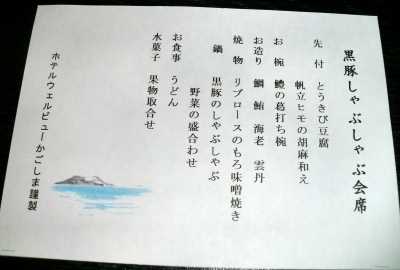 黒豚しゃぶしゃぶ会席
先付 とうきび豆腐
帆立ヒモの胡麻和え
お椀 鱧の葛打ち椀
お造り 鯛 鮪 海老 雲丹
焼物 リブロースのもろ味噌焼き
鍋 黒豚のしゃぶしゃぶ
野菜の盛合わせ
お食事 うどん
水菓子 果物取合せ
ホテルウェルビューかごしま謹製